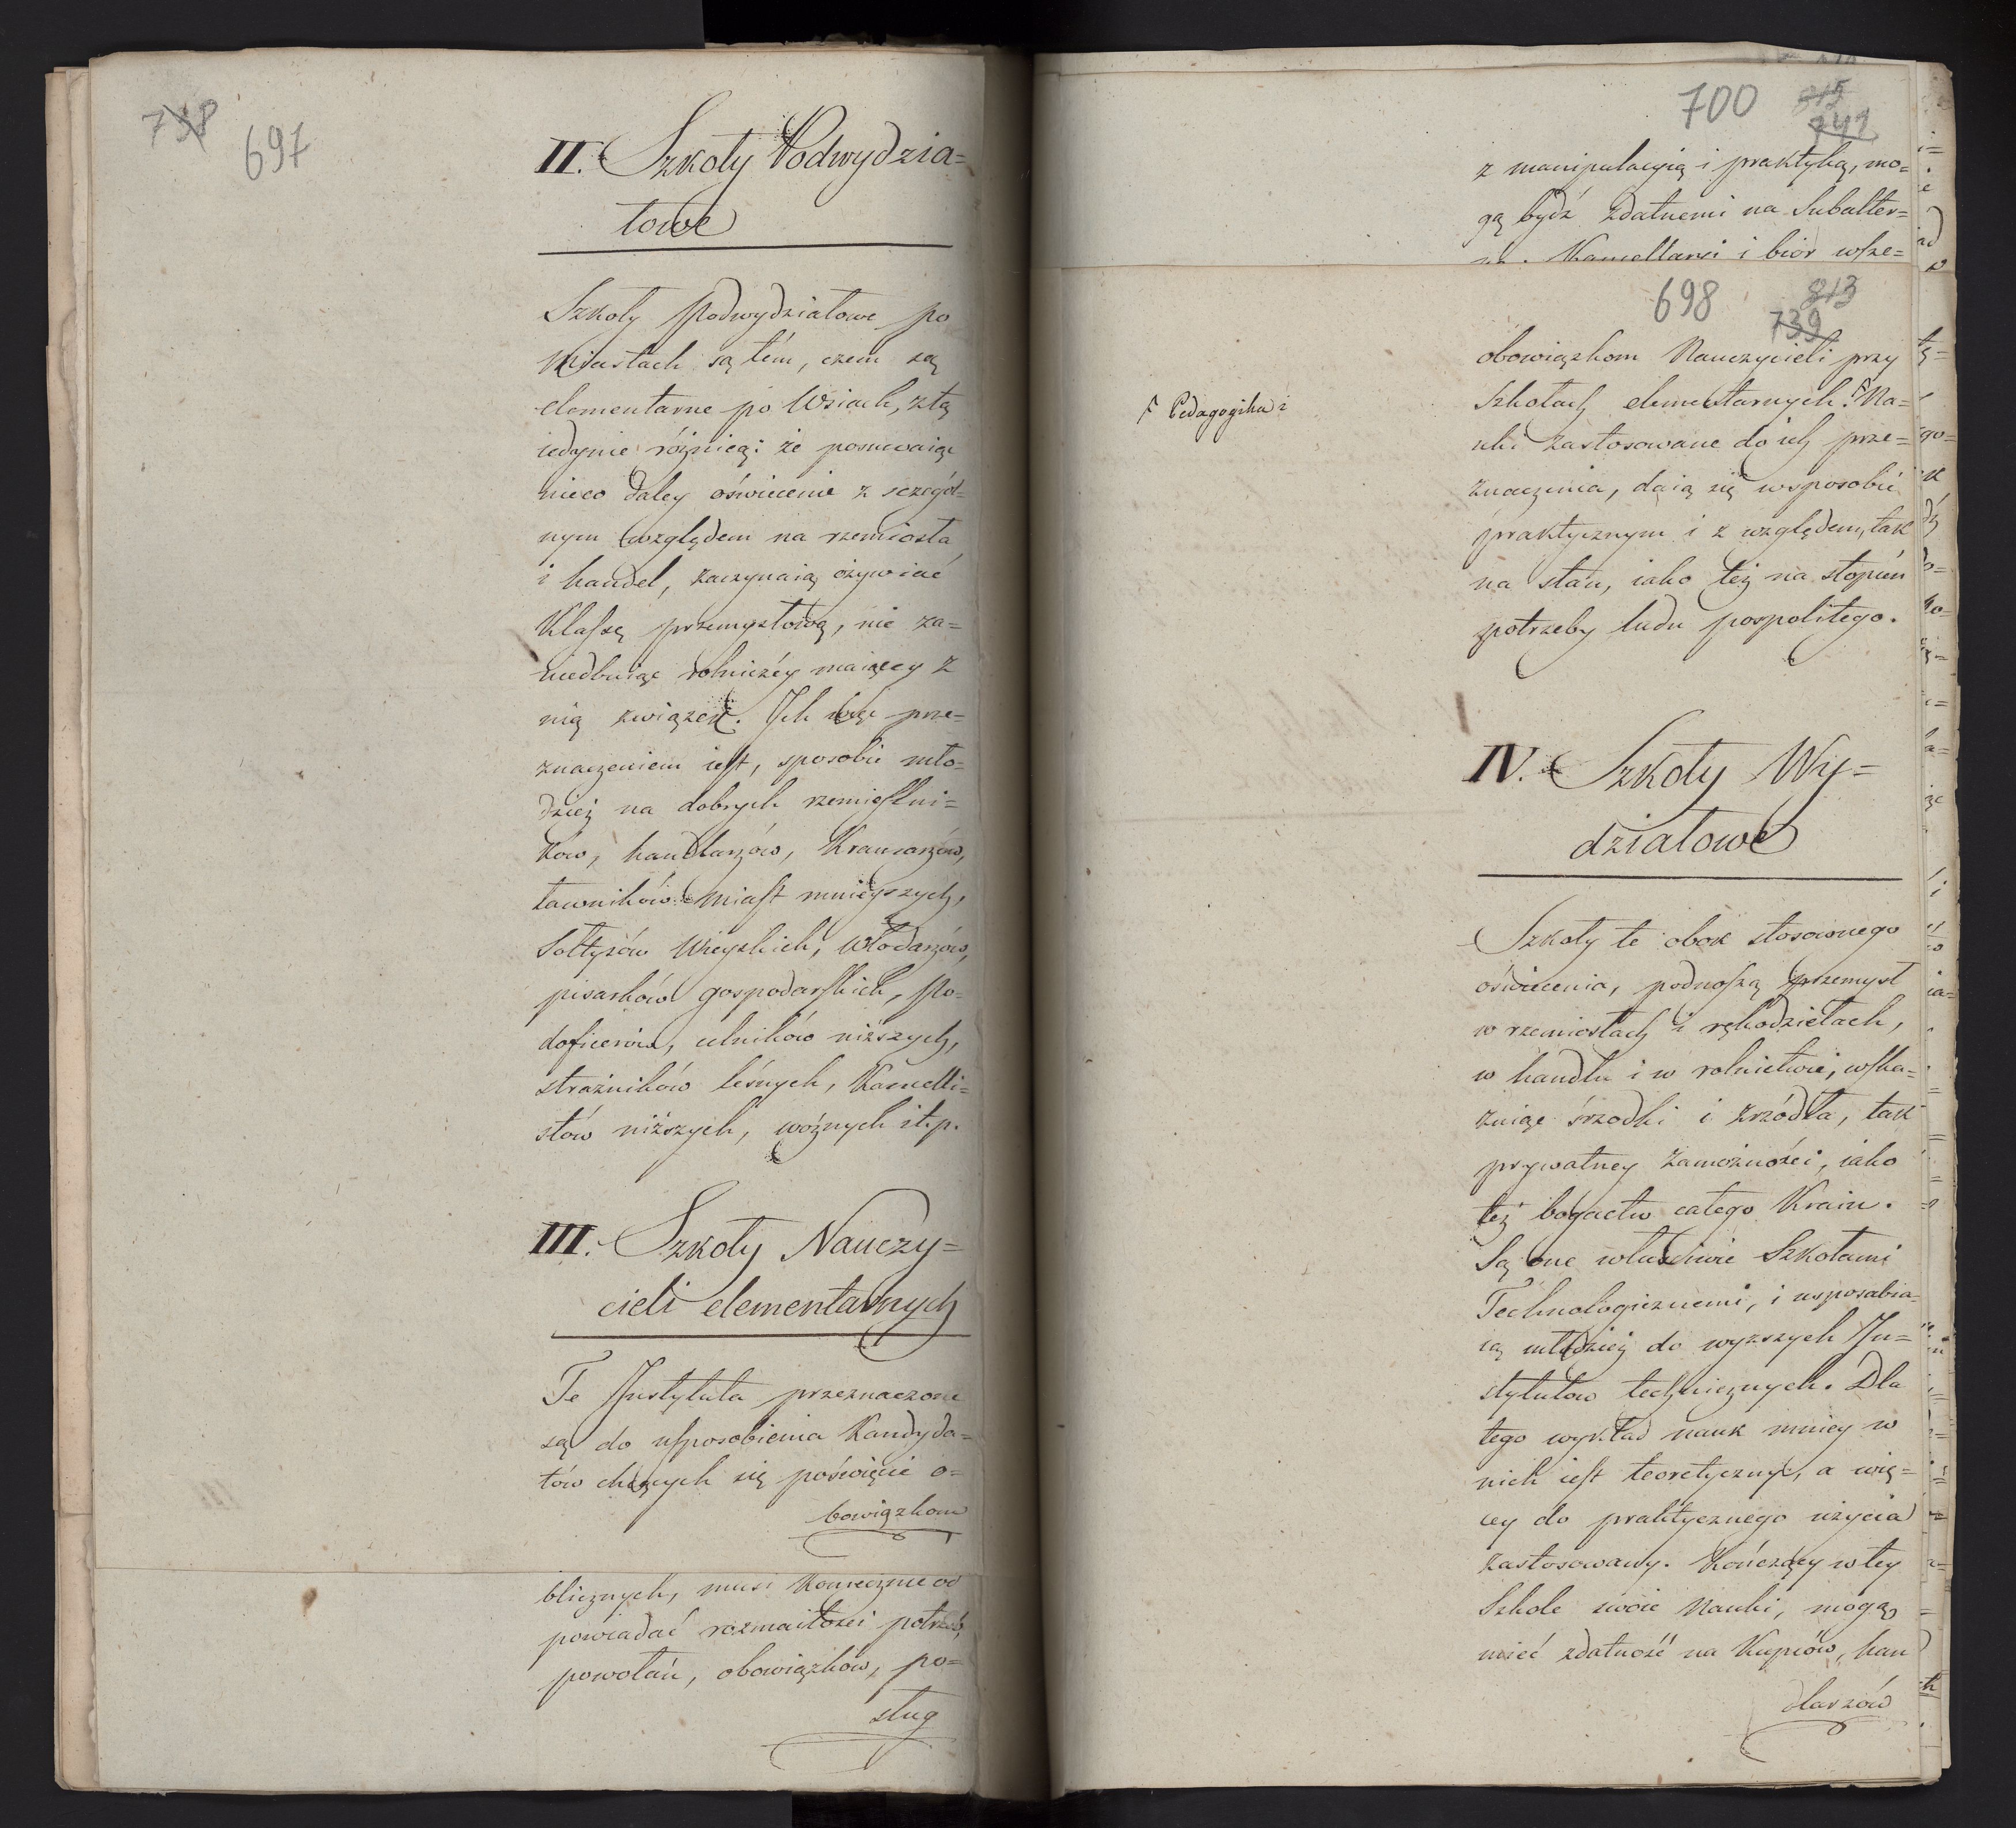 738 697
II. Szkoły Podwydzia=
łowe
Szkoły Podwydziałowe po
Miastach są tém, czem są
elementarne po Wsiach, z tą
iedynie różnicą: że posuwaiąc
nieco daley oświecenie z sczegól=
nym względem na rzemiosła
i handel, zaczynaią ożywiać
Klassę przemysłową, nie za=
niedbuiąc rolniczéy maiącey z
nią związek. Ich więc prze=
znaczeniem iest, sposobić mło=
dzież na dobrych rzemieślni=
ków, handlarzów, Kramarzów,
ławników miast mnieyszych,
Sołtysów Wieyskich, Włodarzów,
pisarków gospodarskich, Po=
doficerów, celników niższych,
strażników leśnych, Kancelli=
stów niższych, woźnych itp.
III. Szkoły Nauczy=
cieli elementarnych
Te Instytuta przeznaczone
są do usposobienia Kandyda=
tów chcących się poświęcić o=
bowiązkom
blicznych, musi koniecznie od
powiadać rozmaitości potrzeb,
powołań, obowiązków, po=
sług
700 815
742
z manipulacyią i praktyką, mo=
gą bydź zdatnemi na Subalter=
Kancellarsi i biór wsze=
698 813
739
obowiązkom Nauczycieli przy
Szkołach elementarnych. Na=
Pedagogika i
uki zastosowane do ich prze=
znaczenia, daią się w sposobie
praktycznym i z względem, tak
na stan, iako też na stopień
potrzeby ludu pospolitego.
IV. Szkoły Wy=
działowe
Szkoły te obok stosownego
oświecenia, podnoszą przemysł
w rzemiosłach i rękodziełach,
w handlu i w rolnictwie, wska=
zuiąc śrzodki i źrzódła, tak
prywatney zamożności, iako
też bogactw całego Kraiu.
Są one właściwie Szkołami
Technologicznemi, i usposabia=
ią młodzież do wyższych In=
stytutów technicznych. Dla
tego wykład nauk mniey w
nich iest teoretyczny, a wię=
cey do praktycznego użycia
zastosowany. Kończący w tey
Szkole swoie Nauki, mogą
mieć zdatność na Kupców, han
dlarzów